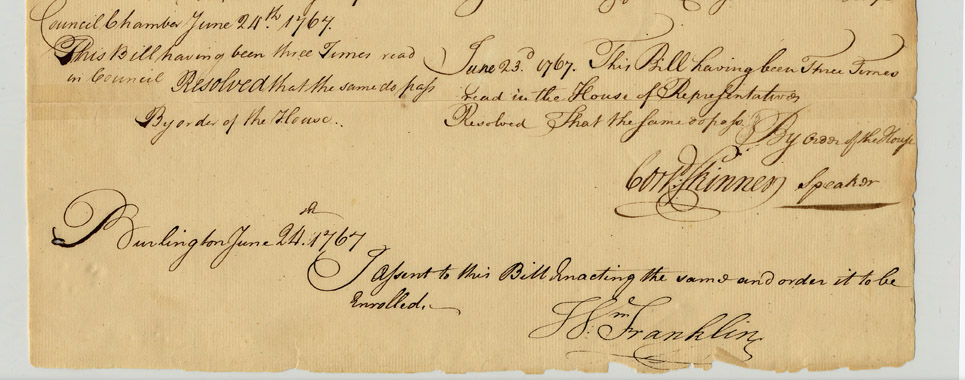 Council Chamber June 24.th 1767.
This Bill having been three Times read
in Council Resolved that the same do pass
By order of the House.
June 23.d 1767. This Bill having been Three Times
read in the House of Representatives
Resolved That the same do pass.
By Order of the House
Cort.d Skinner Speaker
Burlington June 24.th 1767
I Assent to this Bill Enacting the same and order it to be
Enrolled.
W.m Franklin